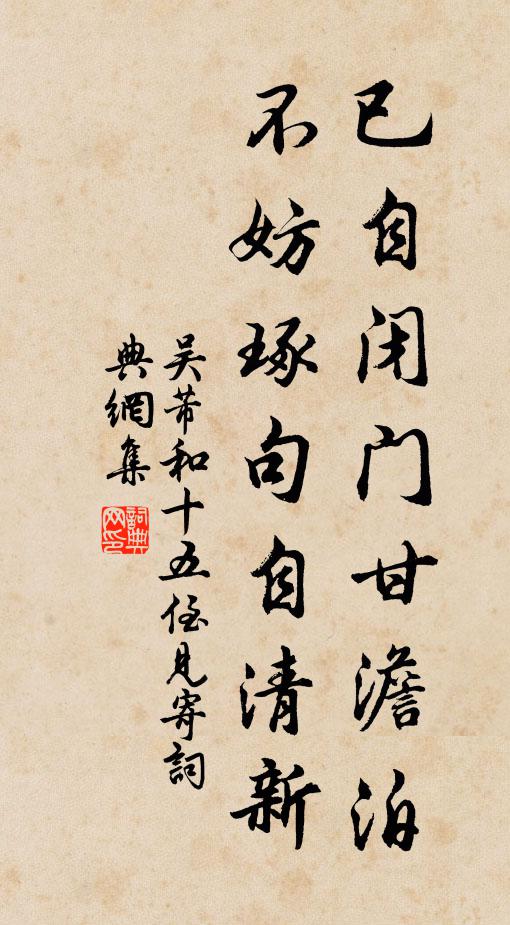 已自闭门甘澹泊
不妨琢句自清新
吴芾和十五侄见寄詞
典網集
詞典
网印